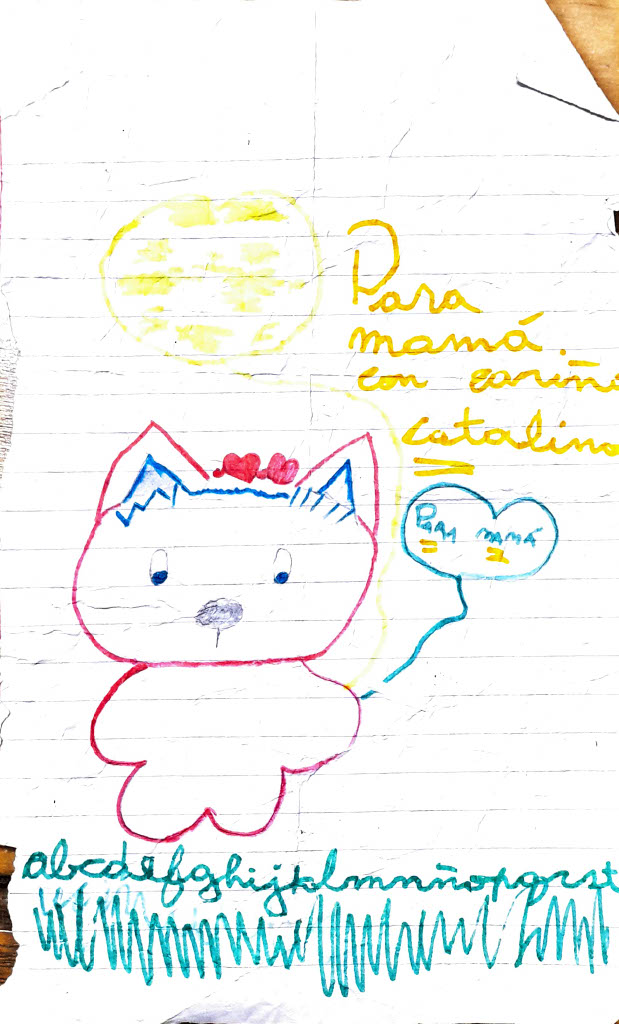 Para
mamá.
con cariño
catalina
Para mamá
abcdefghijklmnñopqrst